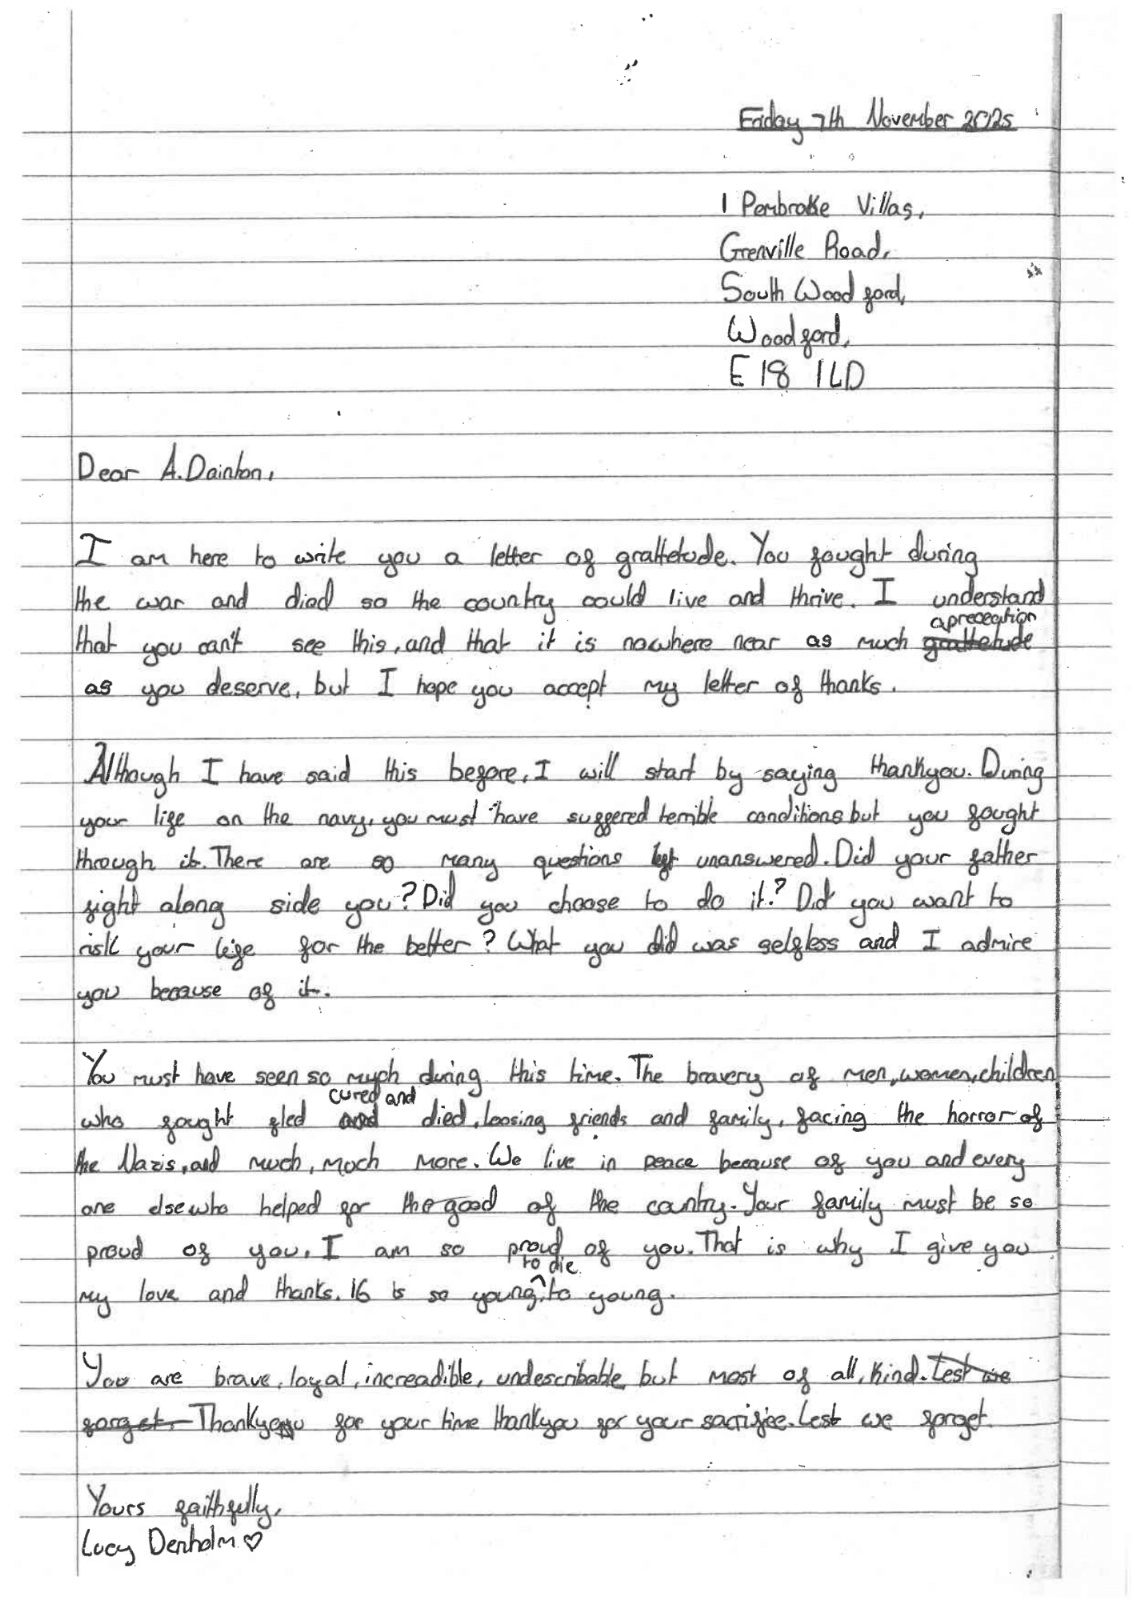 Friday 7th November 2025
1 Pembroke Villas,
Grenville Road,
South Woodford,
Woodford,
E18 1LD
Dear A.Dainton,
I am here to write you a letter of grattetude. You fought during
the war and died so the country could live and thrive. I understand
that you can't see this, and that it is nowhere near as much apreceation
as you deserve, but I hope you accept my letter of thanks.
Although I have said this before, I will start by saying thankyou. During
your life on the navy, you must have suffered terrible conditions but you fought
through it. There are so many questions left unanswered. Did your father
fight along side you? Did you choose to do it? Did you want to
risk your life for the better? What you did was selfless and I admire
you because of it.
You must have seen so much during this time. The bravery of men, women, children
who fought fled cured and died, loosing friends and family, facing the horror of
the Nazis, and much, much more. We live in peace because of you and every
one else who helped for the good of the country. Your family must be so
proud of you. I am so proud of you. That is why I give you
my love and thanks. 16 is so young to die. to young.
You are brave, loyal, increadible, undescribable but most of all, kind. Lest we
forget. Thankyou for your time thankyou for your sacrifice. Lest we forget.
Yours faithfully,
Lucy Denholm ♡